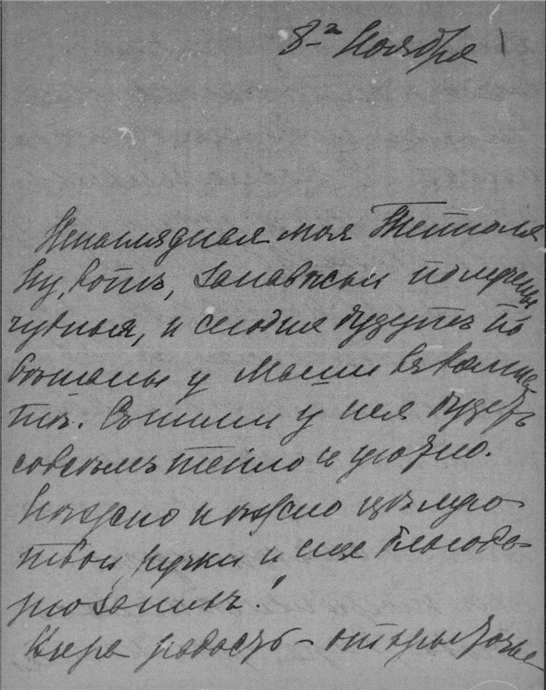 8-го Ноября
Ненаглядная моя Тетюля
Ну, вотъ, занавѣски получены
чудныя, и сегодня будутъ по
вѣшаны у Маши въ комна
тѣ. Съ ними у нея будетъ
совсѣмъ тепло и уютно.
Нѣжно нѣжно цѣлую
твои ручки и еще благода-
рю за нихъ!
Вчера радость – открыточка